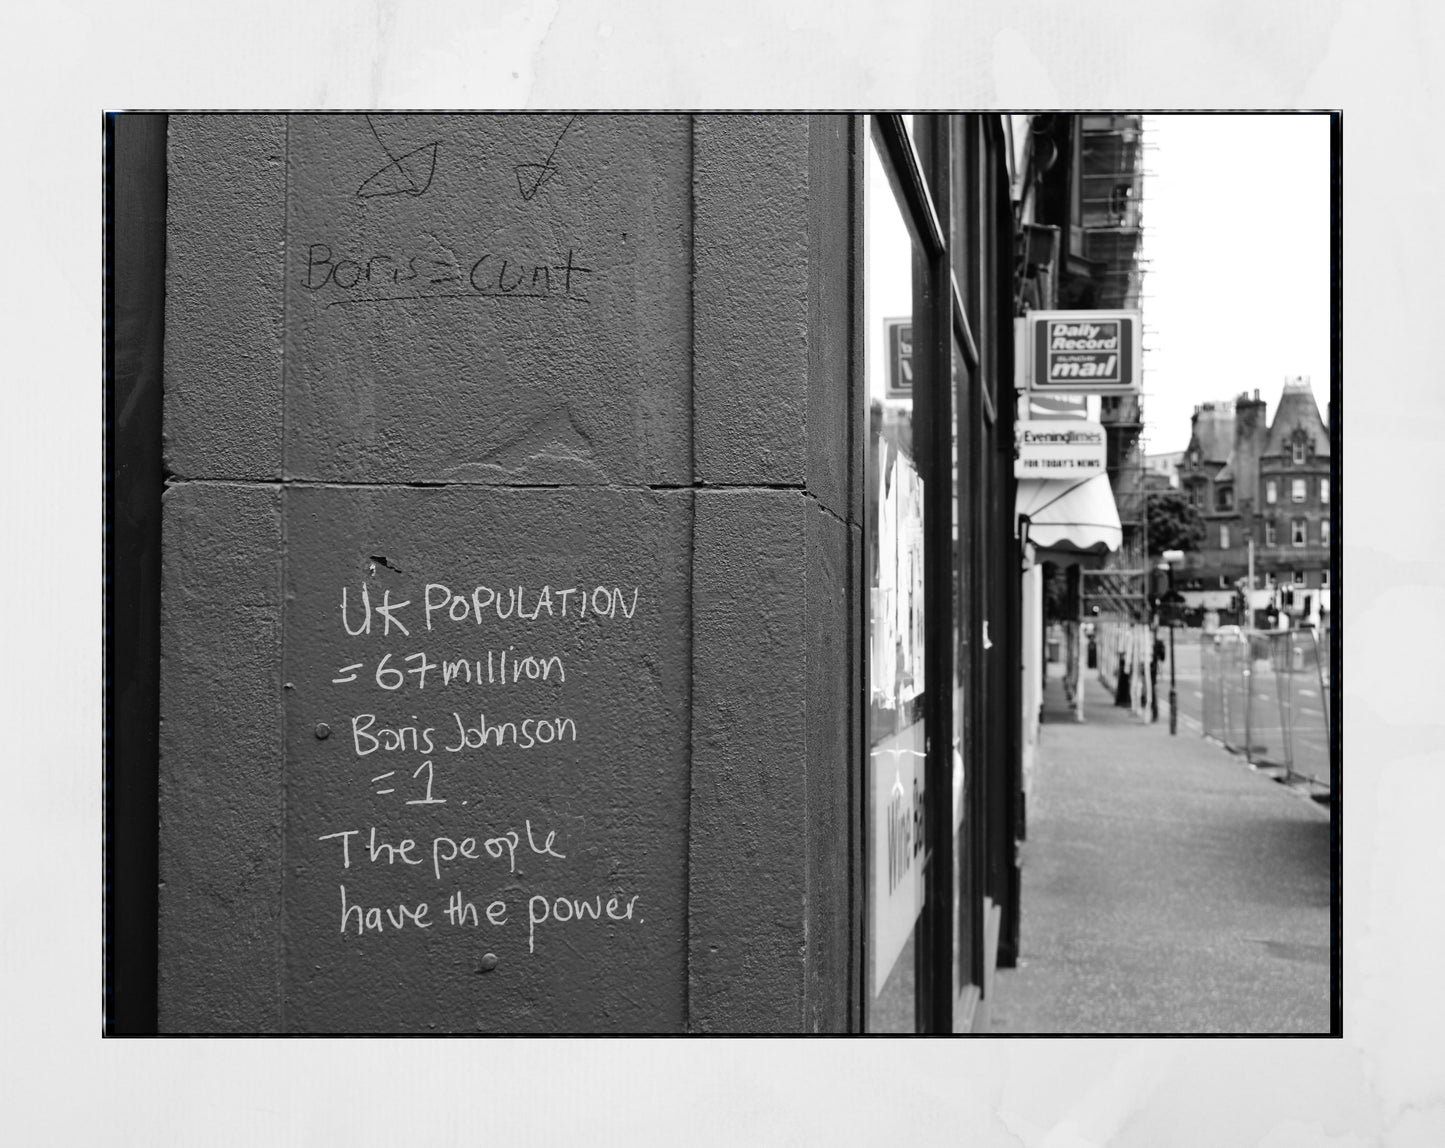 Boris = cunt
UK POPULATION
= 67 million
Boris Johnson
= 1.
The people
have the power.
Daily
Record
SUNDAY
mail
EveningTimes
FOR TODAY'S NEWS
Wine